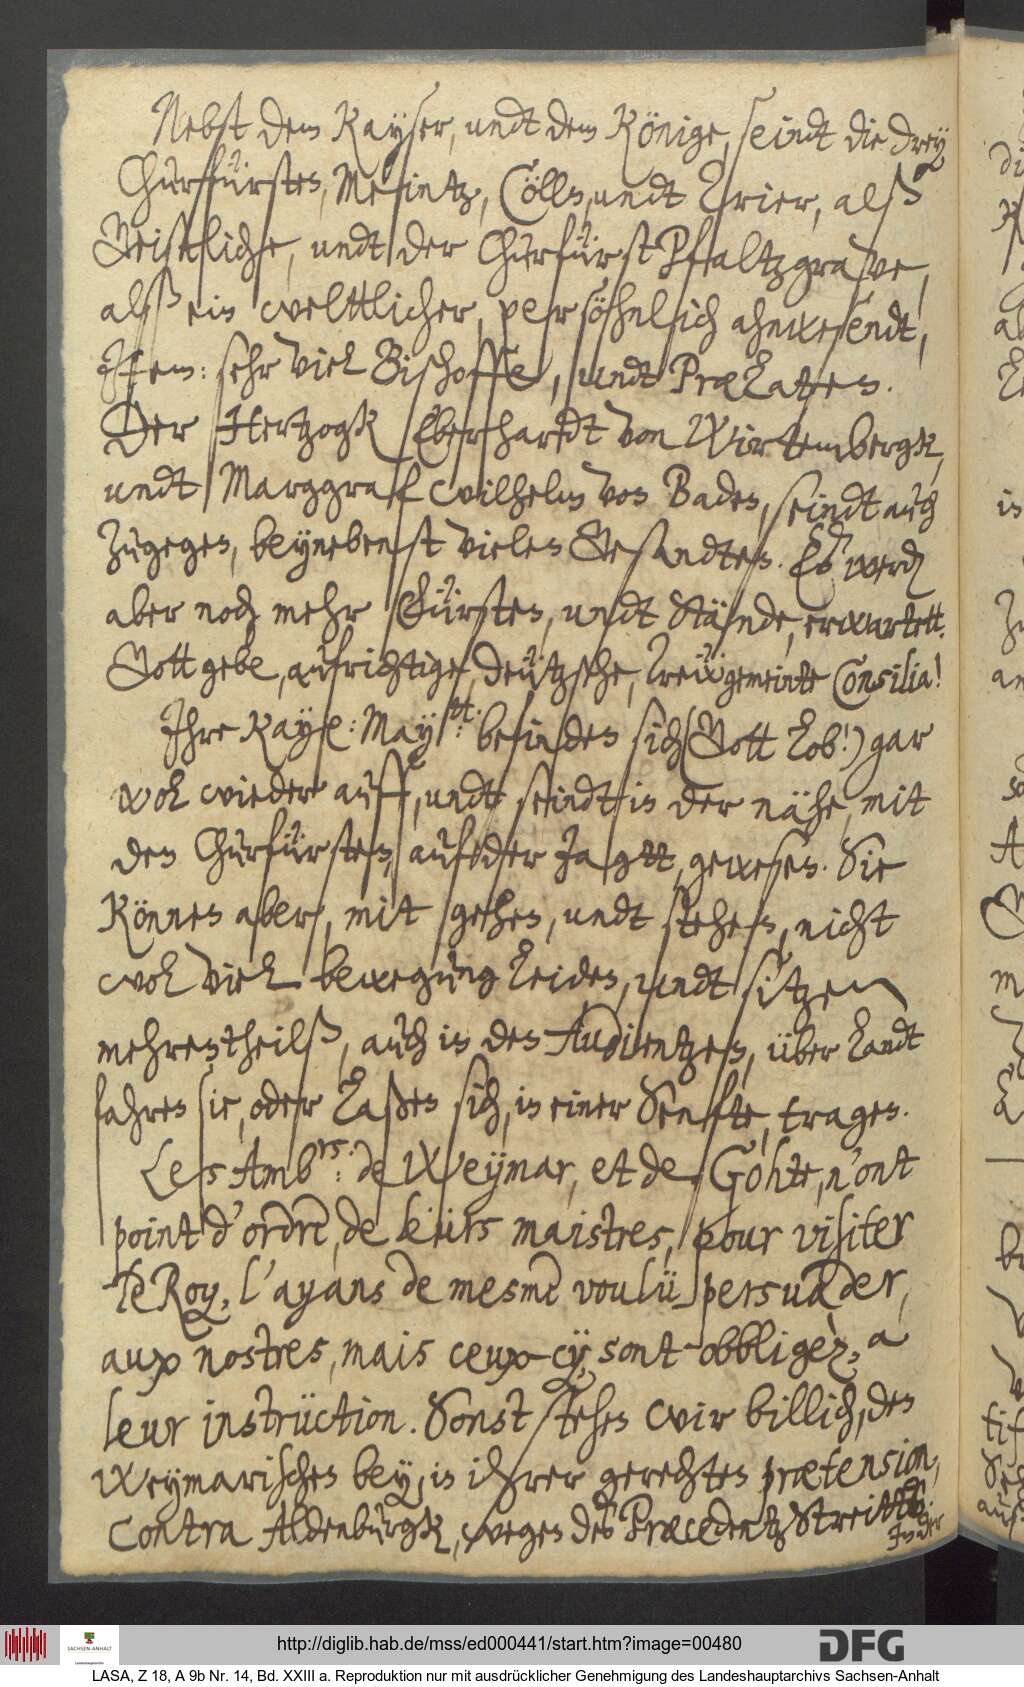 Nebst dem Kayser, undt dem Könige, seindt die drey
Churfürsten, Meintz, Cölln, undt Trier, alß
Geistliche, undt der Churfürst Pfaltzgrave,
alß ein welttlicher, persöhnlich ahnwesendt,
Item: sehr viel Bischoffe, undt Prælaten.
Der Hertzogk Eberhardt von Wirtembergk,
undt Marggraff Wilhelm von Baden, seindt auch
zugegen, beynebenst vielen Gesandten. Es werden
aber noch mehr Fürsten, undt Stände, erwartett.
Gott gebe, aufrichtige, deützsche, treügemeinte Consilia!
Ihre Kay: May:tt: befinden sich (Gott lob!) gar
wol wieder auff, undt seindt in der nähe, mit
den Churfürsten, auf der Jagtt, gewesen. Sie
können aber, mit gehen, undt stehen, nicht
wol viel bewegung leiden, undt sitzen
mehrentheilß, auch in den Audientzen, über Landt
fahren sie, oder laßen sich, in einer Senfte, tragen.
Les Ambrs: de Weymar, et de Gohte, n'ont
point d'ordre, de leurs maistres, pour visiter
le Roy, l'ayans de mesme voulü persuader,
aux nostres, mais ceux-cy, sont obbligèz, a
leur instrüction. Sonst stehen wir billich, den
Weymarischen bey, in ihrer gerechten prætension,
contra Aldenburgk, wegen des Præcedentz Streitts
In der
http://diglib.hab.de/mss/ed000441/start.htm?image=00480
DFG
SACHSEN-ANHALT
LASA, Z 18, A 9b Nr. 14, Bd. XXIII a. Reproduktion nur mit ausdrücklicher Genehmigung des Landeshauptarchivs Sachsen-Anhalt